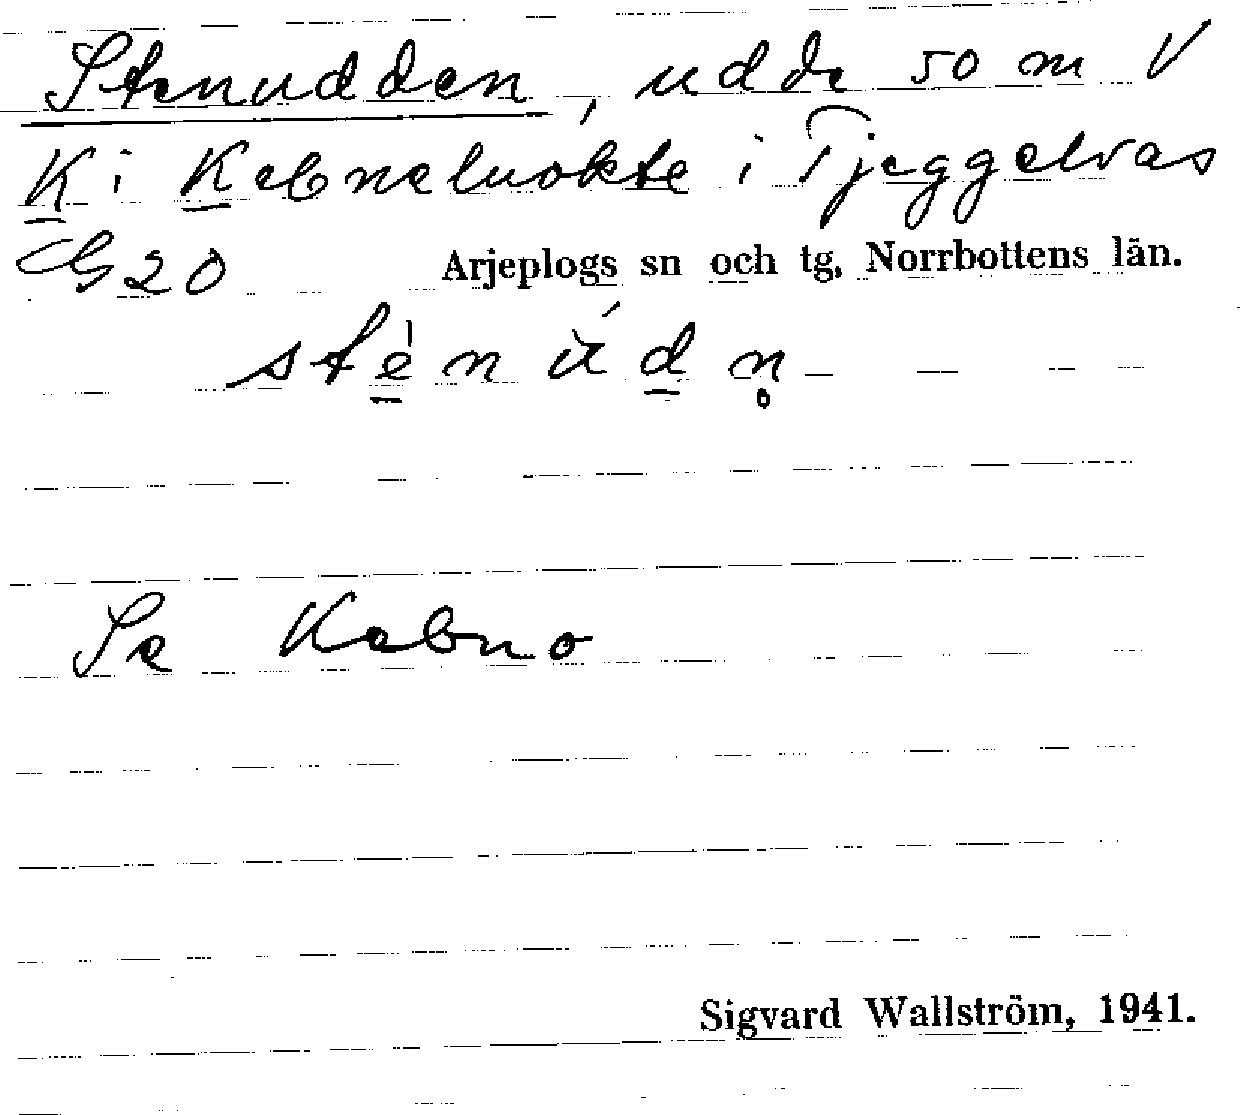 Stenudden, udde 50 m V
K i Kebneluokte i Tjeggelvas
G20 Arjeplogs sn och tg, Norrbottens län.
sténúdn̥
Se Kebno
Sigvard Wallström, 1941.